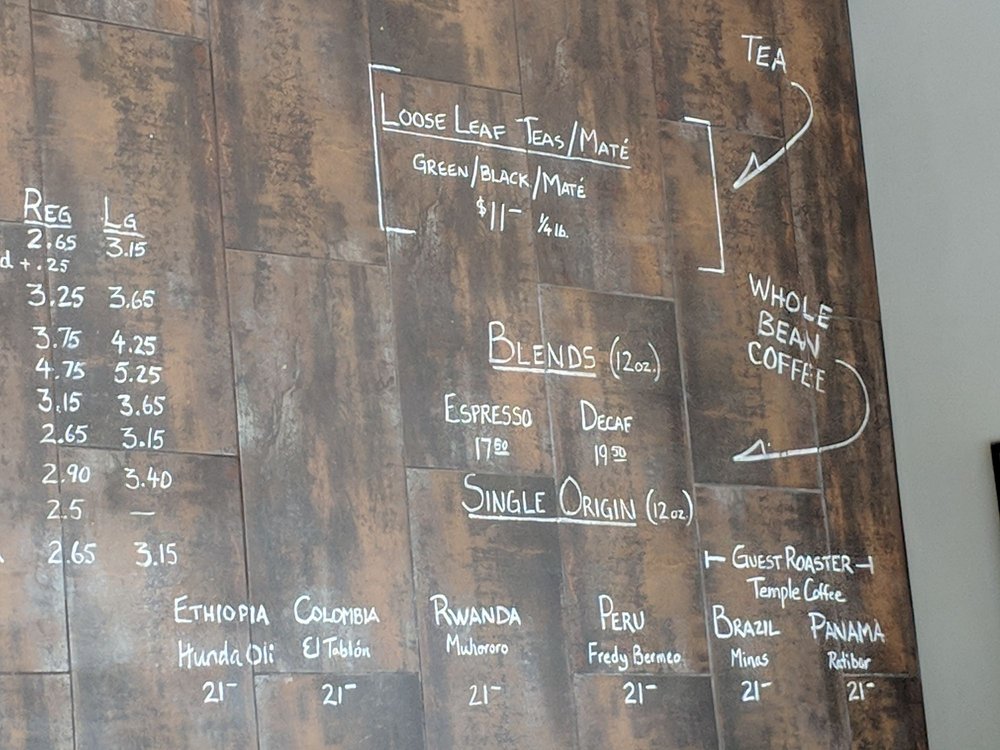 TEA
LOOSE LEAF TEAS/MATÉ
GREEN/BLACK/MATÉ
$11- 1/4 lb.
REG LG
2.65 3.15
d + .25
3.25 3.65
3.75 4.25
4.75 5.25
3.15 3.65
2.65 3.15
2.90 3.40
2.5 —
2.65 3.15
WHOLE
BEAN
COFFEE
BLENDS (12oz.)
ESPRESSO DECAF
17 50 19 50
SINGLE ORIGIN (12oz.)
GUEST ROASTER
Temple Coffee
ETHIOPIA COLOMBIA RWANDA PERU BRAZIL PANAMA
Hunda Oli El Tablón Muhororo Fredy Bermeo Minas Ratibor
21- 21- 21- 21- 21- 21-